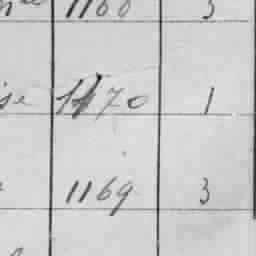 1168 3
se 1170 1
1169 3